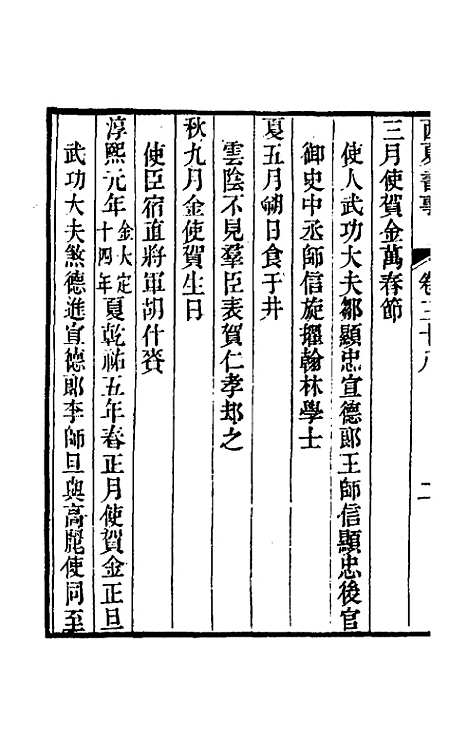 西夏書事 卷三十八 二
三月使賀金萬春節
使人武功大夫鄒顯忠宣德郎王師信顯忠後官
御史中丞師信旋擢翰林學士
夏五月朔日食于井
雲陰不見羣臣表賀仁孝却之
秋九月金使賀生日
使臣宿直將軍胡什賚
淳熙元年金大定十四年夏乾祐五年春正月使賀金正旦
武功大夫煞德進宣德郎李師旦與高麗使同至